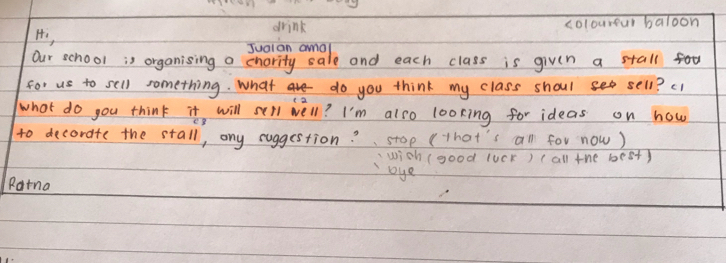 drink
colourful baloon
Hi,
Jualan amal
Our school is organising a charity sale and each class is given a stall fou
for us to sell something. What are do you think my class shoul see sell? c1
What do you think it will sell well? I'm also looking for ideas on how
c2
to decorate the stall, any suggestion? stop (that's all for now)
c3
wish (good luck) (all the best)
bye
Ratna